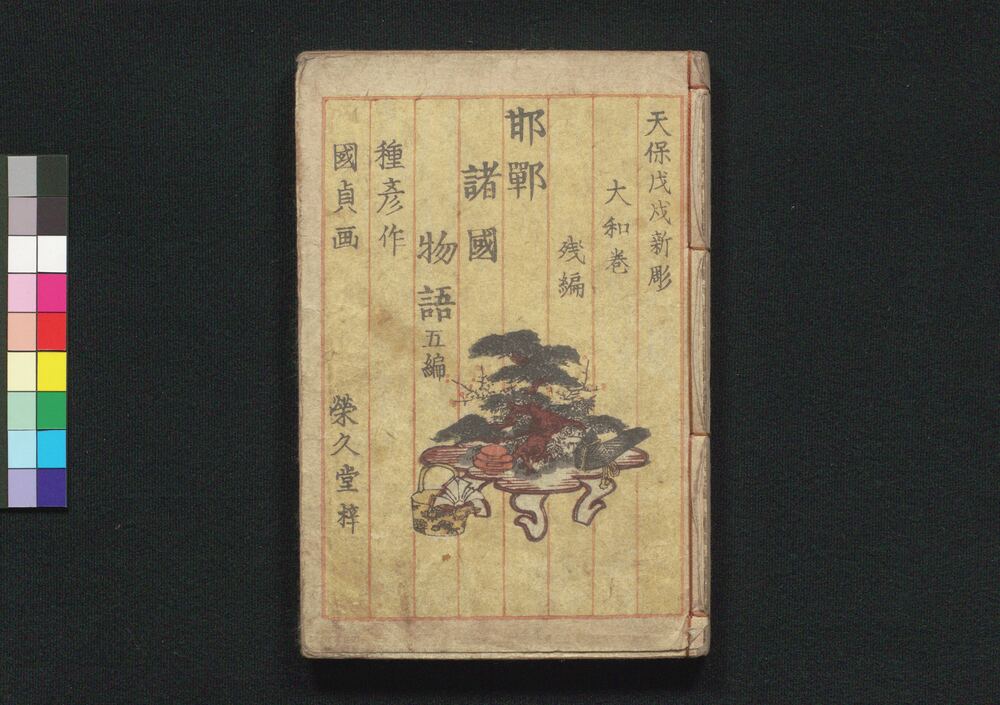 天保戊戌新彫
大和巻
残編
邯鄲
諸國
物語五編
種彦作
國貞画
榮久堂梓